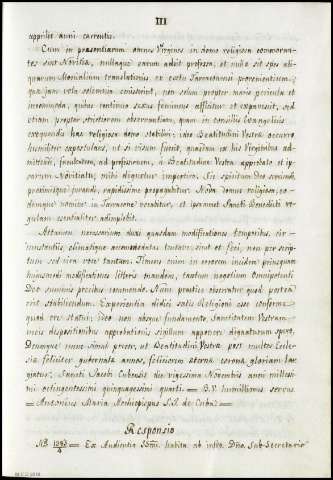 III
apprilis anni currentis.
Cum in praesentiarum omnes Virgines in domo religiosa commorantes
sint Novitiae, nullaque earum adsit professa, et nulla sit spes ali-
quarum Monialium translationis, ex coetu Tarraconensi provenientium;
quae jam vota solemnia emisserint, non solum propter maris pericula et
incommoda, quibus continuo sexus femineus affligitur et expavescit, sed
etiam propter strictiorem observantiam, quam in consiliis Evangelicis
exequendis haec religiosa domo stabilivi; ideo Beatitudini Vestrae occurro
humiliter expostulans, ut si visum fuerit, quasdam ex his Virginibus ad-
mittendi, facultatem, ad professionem, a Beatitudine Vestra approbato et ip-
sarum Novitiatu, mihi dignetur impertire. Sic Spiritu Deo serviendi,
proximisque juvandi, rapidissime propagabitur. Nova domus religiosa, eo-
demque nomine in Tarracone vocabitur, et ipsamet Sancti Benedicti re-
gulam essentialiter adimplebit.
Attamen necessarium duxi quasdam modificationes temporibus, cir-
cumstantiis, climatique accommodatas tentare, sint et fieri, non per scrip-
tum sed viva voce tantum. Timens enim in errorem incidere priusquam
hujuscemodi modificationes litteris mandem, tantum negotium Omnipotenti
Deo summis precibus commendo. Nunc practice observatur quod posteá
erit stabiliendum. Experientia didici satis Religioni esse conforme
quod ore statur; ideo non absque fundamento, Sanctitatem Vestram
meis depositionibus approbationis sigillum apponere dignaturam spero,
Denique nunc simul precor, ut Beatitudini Vestrae post multos Eccle-
siae feliciter gubernatae annos, feliciorem aeternae coronae gloriam lar-
giatur. Sancti Jacobi Cubensis die vigessima Novembris anni milless-
imi octingentessimi quinquagessimi quarti. = B. V. humillimus servus
= Antonius Maria Archiepiscopus S. J. de Cuba =
Responsio
Nº 1287/4 = Ex Audientia SSmi. habita ab infro. Dño. Sub-Secretario